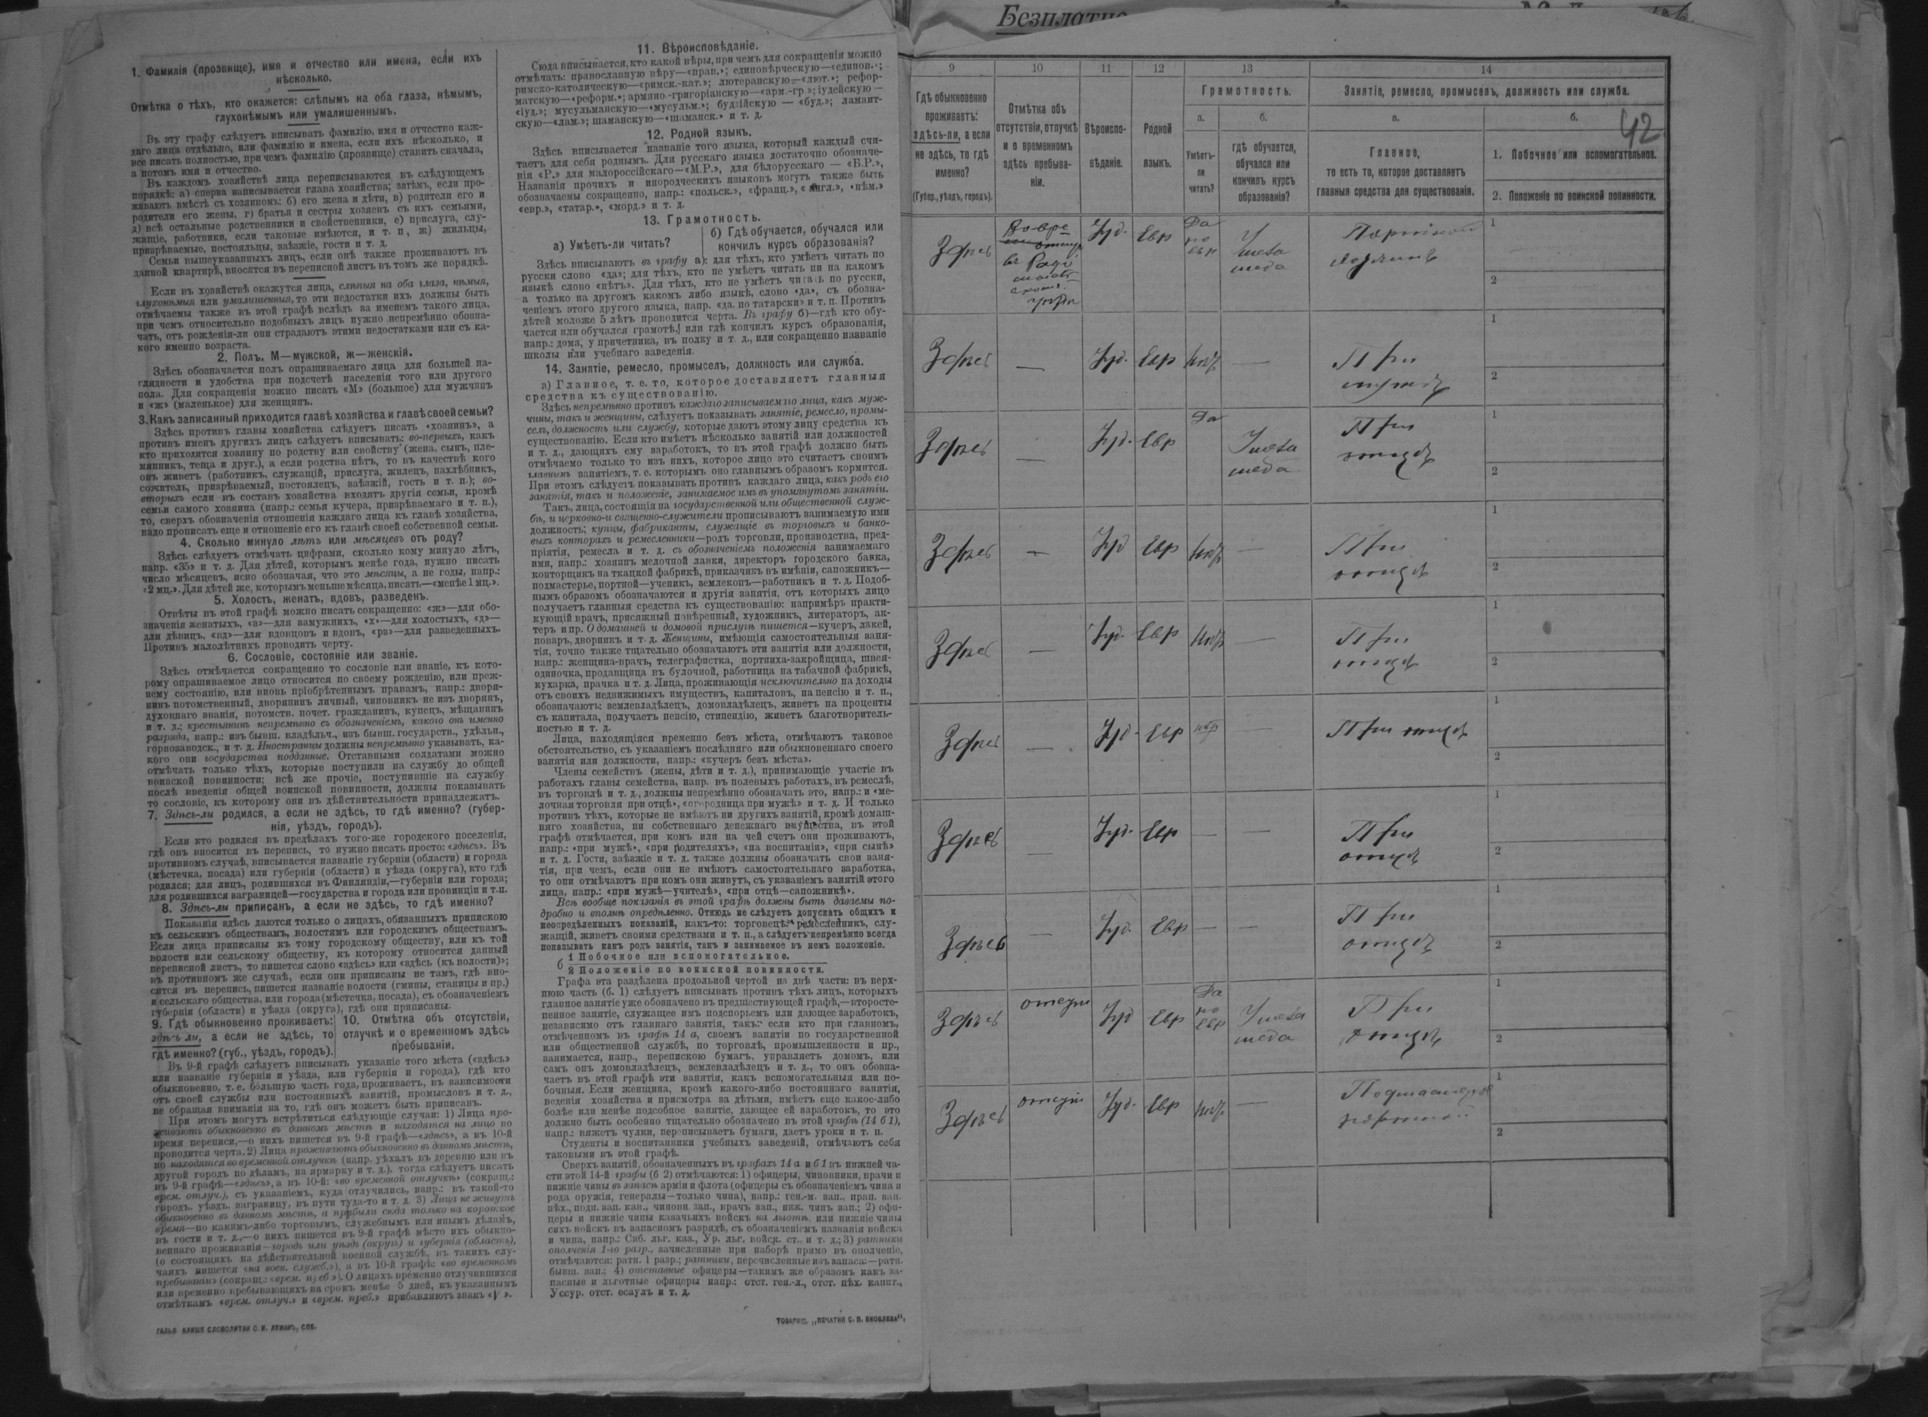 1. Фамилія (прозвище), имя и отчество или имена, если ихъ
нѣсколько.
Отмѣтка о тѣхъ, кто окажется: слѣпымъ на оба глаза, нѣмымъ,
глухонѣмымъ или умалишеннымъ.
Въ эту графу слѣдуетъ вписывать фамилію, имя и отчество каж-
даго лица отдѣльно, или фамилію и имена, если ихъ нѣсколько, и
все писать полностью, при чемъ фамилію (прозвище) ставить сначала,
а потомъ имя и отчество.
Въ каждомъ хозяйствѣ лица переписываются въ слѣдующемъ
порядкѣ: а) сперва записывается глава хозяйства; затѣмъ, если про-
живаютъ вмѣстѣ съ хозяиномъ: б) его жена и дѣти, в) родители его и
родители его жены, г) братья и сестры хозяевъ съ ихъ семьями,
д) всѣ остальные родственники и свойственники, е) прислуга, слу-
жащіе, работники, если таковые имѣются, и т. п., ж) жильцы,
призрѣваемые, постояльцы, заѣзжіе, гости и т. д.
Семьи вышеуказанныхъ лицъ, если онѣ также проживаютъ въ
данной квартирѣ, вносятся въ переписной листъ въ томъ же порядкѣ.
Если въ хозяйствѣ окажутся лица, слѣпыя на оба глаза, нѣмыя,
глухонѣмыя или умалишенныя, то эти недостатки ихъ должны быть
отмѣчаемы также въ этой графѣ вслѣдъ за именемъ такого лица,
при чемъ относительно подобныхъ лицъ нужно непремѣнно обозна-
чать, отъ рожденія-ли они страдаютъ этими недостатками или съ ка-
кого именно возраста.
2. Полъ. М—мужской, ж—женскій.
Здѣсь обозначается полъ опрашиваемаго лица для большей на-
глядности и удобства при подсчетѣ населенія того или другого
пола. Для сокращенія можно писать «М» (большое) для мужчинъ
и «ж» (маленькое) для женщинъ.
3. Какъ записанный приходится главѣ хозяйства и главѣ своей семьи?
Здѣсь противъ главы хозяйства слѣдуетъ писать «хозяинъ», а
противъ именъ другихъ лицъ слѣдуетъ вписывать: во-первыхъ, какъ
кто приходится хозяину по родству или свойству (жена, сынъ, пле-
мянникъ, теща и друг.), а если родства нѣтъ, то въ качествѣ кого
онъ живетъ (работникъ, служащій, прислуга, жилецъ, нахлѣбникъ,
сожитель, призрѣваемый, постоялецъ, заѣзжій, гость и т. п.); во-
вторыхъ если въ составъ хозяйства входятъ другія семьи, кромѣ
семьи самого хозяина (напр.: семья кучера, призрѣваемаго и т. п.),
то, сверхъ обозначенія отношенія каждаго лица къ главѣ хозяйства,
надо прописать еще и отношеніе его къ главѣ своей собственной семьи.
4. Сколько минуло лѣтъ или мѣсяцевъ отъ роду?
Здѣсь слѣдуетъ отмѣчать цифрами, сколько кому минуло лѣтъ,
напр. «35» и т. д. Для дѣтей, которымъ менѣе года, нужно писать
число мѣсяцевъ, ясно обозначая, что это мѣсяцы, а не годы, напр.:
«2 мц.». Для дѣтей же, которымъ меньше мѣсяца, писать—«менѣе 1 мц.».
5. Холостъ, женатъ, вдовъ, разведенъ.
Отвѣты въ этой графѣ можно писать сокращенно: «ж»—для обо-
значенія женатыхъ, «з»—для замужнихъ, «х»—для холостыхъ, «д»—
для дѣвицъ, «вд»—для вдовцовъ и вдовъ, «рз»—для разведенныхъ.
Противъ малолѣтнихъ проводить черту.
6. Сословіе, состояніе или званіе.
Здѣсь отмѣчается сокращенно то сословіе или званіе, къ кото-
рому опрашиваемое лицо относится по своему рожденію, или преж-
нему состоянію, или вновь пріобрѣтеннымъ правамъ, напр.: дворя-
нинъ потомственный, дворянинъ личный, чиновникъ не изъ дворянъ,
духовнаго званія, потомств. почет. гражданинъ, купецъ, мѣщанинъ
и т. д.; крестьянинъ непремѣнно съ обозначеніемъ, какого онъ именно
разряда, напр.: изъ бывш. владѣльч., изъ бывш. государств., удѣльн.,
горнозаводск., и т. д. Иностранцы должны непремѣнно указывать, ка-
кого они государства подданные. Отставными солдатами можно
отмѣчать только тѣхъ, которые поступили на службу до общей
воинской повинности; всѣ же прочіе, поступившіе на службу
послѣ введенія общей воинской повинности, должны показывать
то сословіе, къ которому они въ дѣйствительности принадлежатъ.
7. Здѣсь-ли родился, а если не здѣсь, то гдѣ именно? (губер-
нія, уѣздъ, городъ).
Если кто родился въ предѣлахъ того-же городского поселенія,
гдѣ онъ вносится въ перепись, то нужно писать просто: «здѣсь». Въ
противномъ случаѣ, вписывается названіе губерніи (области) и города
(мѣстечка, посада) или губерніи (области) и уѣзда (округа), кто гдѣ
родился; для лицъ, родившихся въ Финляндіи,—губернія или города;
для родившихся заграницей—государства и города или провинціи и т.п.
8. Здѣсь-ли приписанъ, а если не здѣсь, то гдѣ именно?
Показанія здѣсь даются только о лицахъ, обязанныхъ припискою
къ сельскимъ обществамъ, волостямъ или городскимъ обществамъ.
Если лица приписаны къ тому городскому обществу, или къ той
волости или сельскому обществу, къ которому относится данный
переписной листъ, то пишется слово «здѣсь» или «здѣсь (къ волости)»;
въ противномъ же случаѣ, если они приписаны не тамъ, гдѣ вно-
сятся въ перепись, пишется названіе волости (гмины, станицы и пр.)
и сельскаго общества, или города (мѣстечка, посада), съ обозначеніемъ
губерніи (области) и уѣзда (округа), гдѣ они приписаны.
9. Гдѣ обыкновенно проживаетъ: здѣсь ли, а если не здѣсь, то гдѣ именно? (губ., уѣздъ, городъ).
10. Отмѣтка объ отсутствіи, отлучкѣ и о временномъ здѣсь пребываніи.
Въ 9-й графѣ слѣдуетъ вписывать указаніе того мѣста («здѣсь»
или названіе губерніи и уѣзда, или губерніи и города), гдѣ кто
обыкновенно, т. е. большую часть года, проживаетъ, въ зависимости
отъ своей службы или постоянныхъ занятій, промысловъ и т. д.,
не обращая вниманія на то, гдѣ онъ можетъ быть приписанъ.
При этомъ могутъ встрѣтиться слѣдующіе случаи: 1) Лица про-
живаютъ обыкновенно въ данномъ мѣстѣ и находятся на лицо во
время переписи,—о нихъ пишется въ 9-й графѣ—«здѣсь», а въ 10-й
проводится черта. 2) Лица проживаютъ обыкновенно въ данномъ мѣстѣ,
но находятся во временной отлучкѣ (напр. уѣхалъ въ деревню или въ
другой городъ по дѣламъ, на ярмарку и т. д.). тогда слѣдуетъ писать
въ 9-й графѣ—«здѣсь», а въ 10-й: «во временной отлучкѣ» (сокращ.:
врем. отлуч.), съ указаніемъ, куда отлучились, напр.: въ такой-то
городъ, уѣздъ, заграницу, въ пути туда-то и т. д. 3) Лица не живутъ
обыкновенно въ данномъ мѣстѣ, а прибыли сюда только на короткое
время—по какимъ-либо торговымъ, служебнымъ или инымъ дѣламъ,
въ гости и т. д.,—о нихъ пишется въ 9-й графѣ мѣсто ихъ обыкно-
веннаго проживанія—городъ или уѣздъ (округъ) и губернія (область),
(о состоящихъ на дѣйствительной военной службѣ, въ такихъ слу-
чаяхъ пишется «на воен. службѣ»), а въ 10-й графѣ: «во временномъ
пребываніи» (сокращ.: «врем. преб.»). О лицахъ временно отлучившихся
или временно пребывающихъ на срокъ менѣе 5 дней, къ указаннымъ
отмѣткамъ «врем. отлуч.» и «врем. преб.» прибавляютъ знакъ «V».
11. Вѣроисповѣданіе.
Сюда вписывается, кто какой вѣры, при чемъ для сокращенія можно
отмѣчать: православную вѣру—«прав.»; единовѣрческую—«единов.»;
римско-католическую—«римск.-кат.»; лютеранскую—«лют.»; рефор-
матскую—«реформ.»; армяно-григоріанскую—«арм.-гр.»; іудейскую—
«іуд.»; мусульманскую—«мусульм.»; буддійскую—«буд.»; ламаит-
скую—«лам.»; шаманскую—«шаманск.» и т. д.
12. Родной языкъ.
Здѣсь вписывается названіе того языка, который каждый счи-
таетъ для себя роднымъ. Для русскаго языка достаточно обозначе-
нія «Р.» для малороссійскаго—«М.Р.», для бѣлорусскаго — «Б.Р.»,
Названія прочихъ и инородческихъ языковъ могутъ также быть
обозначаемы сокращенно, напр.: «польск.», «франц.», «англ.», «нѣм.»
«евр.», «татар.», «морд.» и т. д.
13. Грамотность.
а) Умѣетъ-ли читать?
б) Гдѣ обучается, обучался или
кончилъ курсъ образованія?
Здѣсь вписываютъ въ графу а): для тѣхъ, кто умѣетъ читать по
русски слово «да»; для тѣхъ, кто не умѣетъ читать ни на какомъ
языкѣ слово «нѣтъ». Для тѣхъ, кто не умѣетъ читать по русски,
а только на другомъ какомъ либо языкѣ, слово «да», съ обозна-
ченіемъ этого другого языка, напр. «да. по татарски» и т. п. Противъ
дѣтей моложе 5 лѣтъ проводится черта. Въ графу б)—гдѣ кто обу-
чается или обучался грамотѣ, или гдѣ кончилъ курсъ образованія,
напр.: дома, у причетника, въ полку и т. д., или сокращенно названіе
школы или учебнаго заведенія.
14. Занятіе, ремесло, промыселъ, должность или служба.
а) Главное, т. е. то, которое доставляетъ главныя
средства къ существованію.
Здѣсь непремѣнно противъ каждаго записываемаго лица, какъ муж-
чины, такъ и женщины, слѣдуетъ показывать занятіе, ремесло, промы-
селъ, должность или службу, которые даютъ этому лицу средства къ
существованію. Если кто имѣетъ нѣсколько занятій или должностей
и т. д., дающихъ ему заработокъ, то въ этой графѣ должно быть
отмѣчаемо только то изъ нихъ, которое лицо это считаетъ своимъ
главнымъ занятіемъ, т. е. которымъ оно главнымъ образомъ кормится.
При этомъ слѣдуетъ показывать противъ каждаго лица, какъ родъ его
занятія, такъ и положеніе, занимаемое имъ въ упомянутомъ занятіи.
Такъ, лица, состоящія на государственной или общественной служ-
бѣ, и церковно-и священно-служители прописываютъ занимаемую ими
должность; купцы, фабриканты, служащіе въ торговыхъ и банко-
выхъ конторахъ и ремесленники—родъ торговли, производства, пред-
пріятія, ремесла и т. д. съ обозначеніемъ положенія занимаемаго
ими, напр.: хозяинъ мелочной лавки, директоръ городского банка,
конторщикъ на ткацкой фабрикѣ, приказчикъ въ имѣніи, сапожникъ—
подмастерье, портной—ученикъ, землекопъ—работникъ и т. д. Подоб-
нымъ образомъ обозначаются и другія занятія, отъ которыхъ лицо
получаетъ главныя средства къ существованію: напримѣръ практи-
кующій врачъ, присяжный повѣренный, художникъ, литераторъ, ак-
теръ и пр. О домашней и домовой прислугѣ пишется—кучеръ, лакей,
поваръ, дворникъ и т. д. Женщины, имѣющія самостоятельныя заня-
тія, точно также тщательно обозначаютъ эти занятія или должности,
напр.: женщина-врачъ, телеграфистка, портниха-закройщица, швея-
одиночка, продавщица въ булочной, работница на табачной фабрикѣ,
кухарка, прачка и т. д. Лица, проживающія исключительно на доходы
отъ своихъ недвижимыхъ имуществъ, капиталовъ, на пенсію и т. п.,
обозначаютъ: землевладѣлецъ, домовладѣлецъ, живетъ на проценты
съ капитала, получаетъ пенсію, стипендію, живетъ благотворитель-
ностью и т. д.
Лица, находящіяся временно безъ мѣста, отмѣчаютъ таковое
обстоятельство, съ указаніемъ послѣдняго или обыкновеннаго своего
занятія или должности, напр.: «кучеръ безъ мѣста».
Члены семействъ (жены, дѣти и т. д.), принимающіе участіе въ
работахъ главы семейства, напр. въ полевыхъ работахъ, въ ремеслѣ,
въ торговлѣ и т. д., должны непремѣнно обозначать это, напр.: и «ме-
лочная торговля при отцѣ», «огородница при мужѣ» и т. д. И только
противъ тѣхъ, которые не имѣютъ ни другихъ занятій, кромѣ домаш-
няго хозяйства, ни собственнаго денежнаго имущества, въ этой
графѣ отмѣчается, при комъ или на чей счетъ они проживаютъ,
напр.: «при мужѣ», «при родителяхъ», «на воспитаніи», «при сынѣ»
и т. д. Гости, заѣзжіе и т. д. также должны обозначать свои заня-
тія, при чемъ, если они не имѣютъ самостоятельнаго заработка,
то они отмѣчаютъ при комъ они живутъ, съ указаніемъ занятій этого
лица, напр.: «при мужѣ—учителѣ», «при отцѣ—сапожникѣ».
Всѣ вообще показанія въ этой графѣ должны быть даваемы по-
дробно и вполнѣ опредѣленно. Отнюдь не слѣдуетъ допускать общихъ и
неопредѣленныхъ показаній, какъ-то: торговецъ, ремесленникъ, слу-
жащій, живетъ своими средствами и т. п., а слѣдуетъ непремѣнно всегда
показывать какъ родъ занятія, такъ и занимаемое въ немъ положеніе.
б 1 Побочное или вспомогательное.
2 Положеніе по воинской повинности.
Графа эта раздѣлена продольной чертой на двѣ части: въ верх-
нюю часть (б. 1) слѣдуетъ вписывать противъ тѣхъ лицъ, которыхъ
главное занятіе уже обозначено въ предшествующей графѣ,—второсте-
пенное занятіе, служащее имъ подспорьемъ или дающее заработокъ,
независимо отъ главнаго занятія, такъ: если кто при главномъ,
отмѣченномъ въ графѣ 14 а, своемъ занятіи по государственной
или общественной службѣ, по торговлѣ, промышленности и пр.,
занимается, напр., перепискою бумагъ, управляетъ домомъ, или
самъ онъ домовладѣлецъ, землевладѣлецъ и т. д., то онъ обозна-
чаетъ въ этой графѣ эти занятія, какъ вспомогательныя или по-
бочныя. Если женщина, кромѣ какого-либо постояннаго занятія,
веденія хозяйства и присмотра за дѣтьми, имѣетъ еще какое-либо
болѣе или менѣе подсобное занятіе, дающее ей заработокъ, то это
должно быть особенно тщательно обозначено въ этой графѣ (14 б 1),
напр.: вяжетъ чулки, переписываетъ бумаги, даетъ уроки и т. п.
Студенты и воспитанники учебныхъ заведеній, отмѣчаютъ себя
таковыми въ этой графѣ.
Сверхъ занятій, обозначенныхъ въ графахъ 14 а и б 1 въ нижней ча-
сти этой 14-й графы (б 2) отмѣчаются: 1) офицеры, чиновники, врачи и
нижніе чины въ запасѣ арміи и флота (офицеры съ обозначеніемъ чина и
рода оружія, генералы—только чина), напр.: ген.-м. зап., прап. зап.
пѣх., подп. зап. кав., чиновн. зап., врачъ зап., ниж. чинъ зап.; 2) офи-
церы и нижніе чины казачьихъ войскъ на льготѣ, или нижніе чины
сихъ войскъ въ запасномъ разрядѣ, съ обозначеніемъ названія войска
и чина, напр.: Сиб. льг. каз., Ур. льг. войск. ст., и т. д.; 3) ратники
ополченія 1-го разр., зачисленные при наборѣ прямо въ ополченіе,
отмѣчаются: ратн. 1 разр.; ратники, перечисленные изъ запаса:—ратн.
бывш. зап.; 4) отставные офицеры—такимъ же образомъ какъ за-
пасные и льготные офицеры напр.: отст. ген.-л., отст. пѣх. капит.,
Уссур. отст. есаулъ и т. д.
ТОВАРИЩ. „ПЕЧАТНЯ С. П. ЯКОВЛЕВА“,
Безплатно
9 10 11 12 13 14
42
Гдѣ обыкновенно
проживаетъ:
здѣсь-ли, а если
не здѣсь, то гдѣ
именно?
(Губер., уѣздъ, городъ).
Отмѣтка объ
отсутствіи, отлучкѣ
и о временномъ
здѣсь пребыва-
ніи.
Вѣроиспо-
вѣданіе.
Родной
языкъ.
Грамотность.
а.
Умѣетъ-
ли
читать?
б.
гдѣ обучается,
обучался или
кончилъ курсъ
образованія?
Занятія, ремесло, промыселъ, должность или служба.
а.
Главное,
то есть то, которое доставляетъ
главныя средства для существованія.
б.
1. Побочное или вспомогательное.
2. Положеніе по воинской повинности.
Здѣсь Іуд. Евр Да по евр У мела меда Портной хозяинъ 1 2
Здѣсь — Іуд. Евр нѣтъ — При мужѣ 1 2
Здѣсь — Іуд. Евр Да У мела меда При отцѣ 1 2
Здѣсь — Іуд Евр нѣтъ — При отцѣ 1 2
Здѣсь — Іуд. Евр нѣтъ — При отцѣ 1 2
Здѣсь — Іуд. Евр нѣтъ — При отцѣ 1 2
Здѣсь — Іуд. Евр — — При отцѣ 1 2
Здѣсь — Іуд. Евр — — При отцѣ 1 2
Здѣсь Іуд Евр Да по евр У мела меда При отцѣ 1 2
Здѣсь Іуд. Евр нѣтъ — Подмастерье портной 1 2